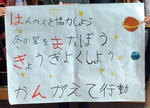 はんの人と協力しよう
冬の星をまなぼう
きょうぎよくしよう
かんがえて行動